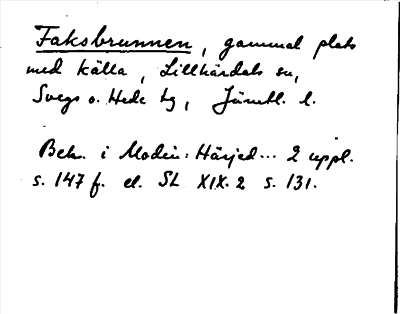 Faksbrunnen, gammal plats
med källa, Lillhärdals sn,
Svegs o. Hede tg, Jämtl. l.
Beh. i Modin: Härjed... 2 uppl.
s. 147 f. el. SL XIX. 2 s. 131.